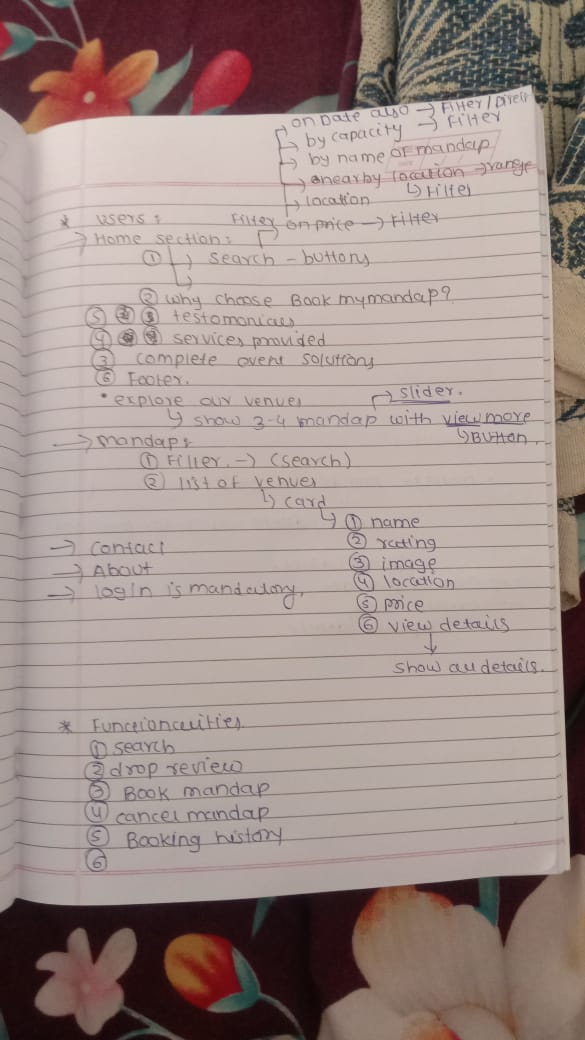 on Date also → Filter / Direct
by capacity → Filter
by name of mandap
nearby location → range
↳ Filter
location
* users: Filter on price → Filter
→ Home section:
① search - buttons
② why choose Book mymandap?
⑤ ③ testomonials
④ services provided
③ complete event solutions
⑥ Footer.
• explore our venues slider.
↳ show 3-4 mandap with view more
↳ Button.
→ mandaps
① Filter. → (search)
② list of venues
↳ card
↳ ① name
→ contact ② rating
→ About ③ image
→ login is mandatory, ④ location
⑤ price
⑥ view details
↓
show all details.
* Functionalities
① search
② drop review
③ Book mandap
④ cancel mandap
⑤ Booking history
⑥